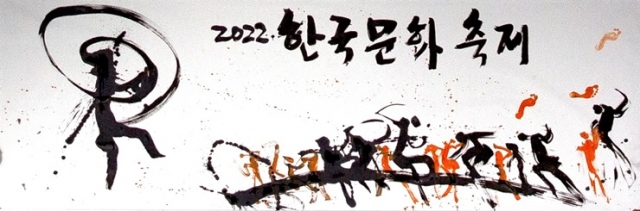 2022 한국문화 축제